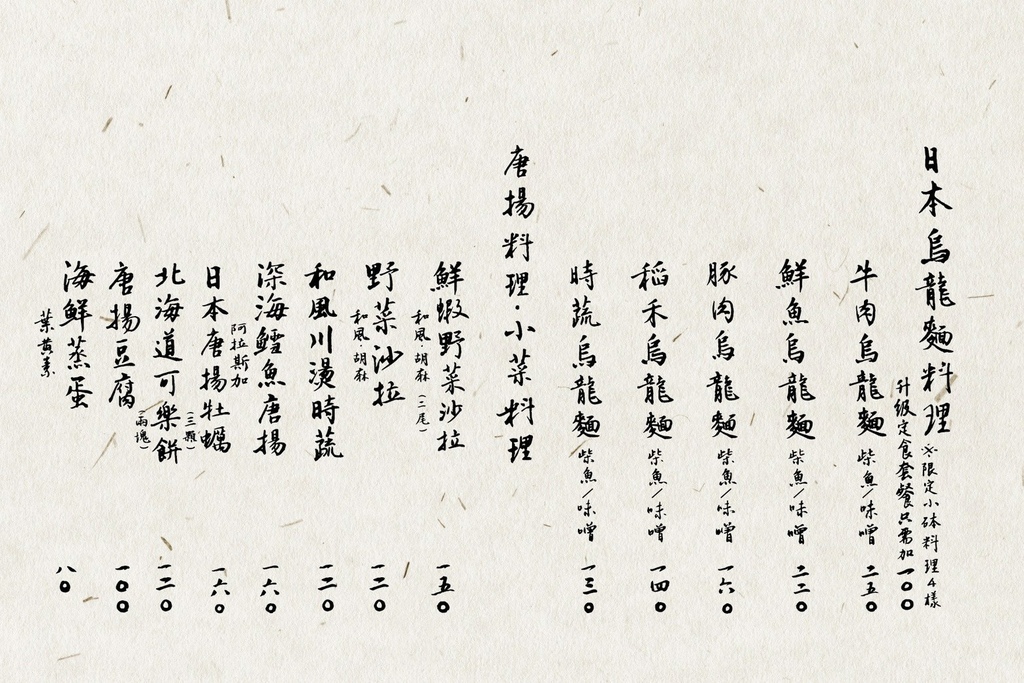 日本烏龍麵料理 ※限定小砵料理4樣
升級定食套餐只需加一〇〇
牛肉烏龍麵 柴魚/味噌 二五〇
鮮魚烏龍麵 柴魚/味噌 二二〇
豚肉烏龍麵 柴魚/味噌 一六〇
稻禾烏龍麵 柴魚/味噌 一四〇
時蔬烏龍麵 柴魚/味噌 一三〇
唐揚料理·小菜料理
鮮蝦野菜沙拉 一五〇
和風·胡麻(二尾)
野菜沙拉 一二〇
和風·胡麻
和風川燙時蔬 一二〇
深海鱈魚唐揚 一六〇
阿拉斯加
日本唐揚牡蠣 一六〇
(三顆)
北海道可樂餅 一二〇
(兩塊)
唐揚豆腐 一〇〇
海鮮蒸蛋 八〇
葉黃素